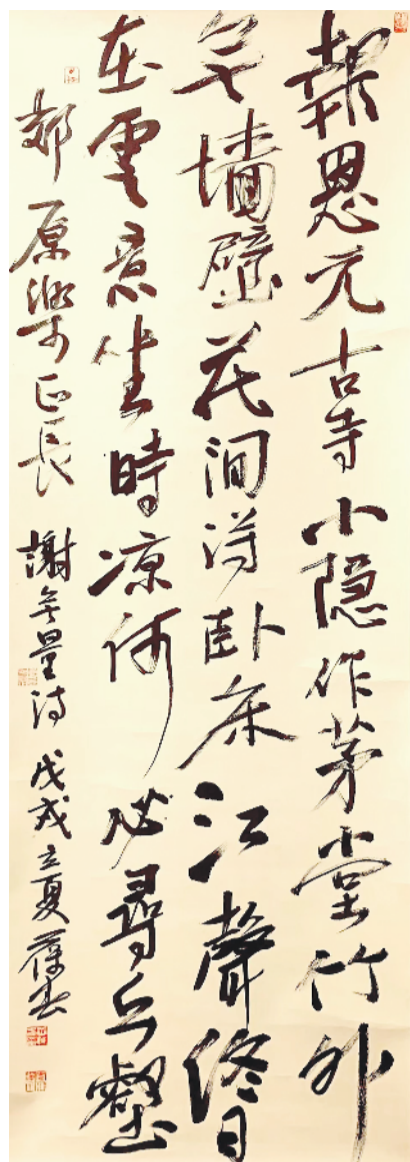 報恩元古寺小隐作茅堂竹外
無墙壁花间得卧床江聲終日
在雲意坐時凉何必尋丘壑
郊原樂正長 謝無量诗 戊戌立夏 葆书